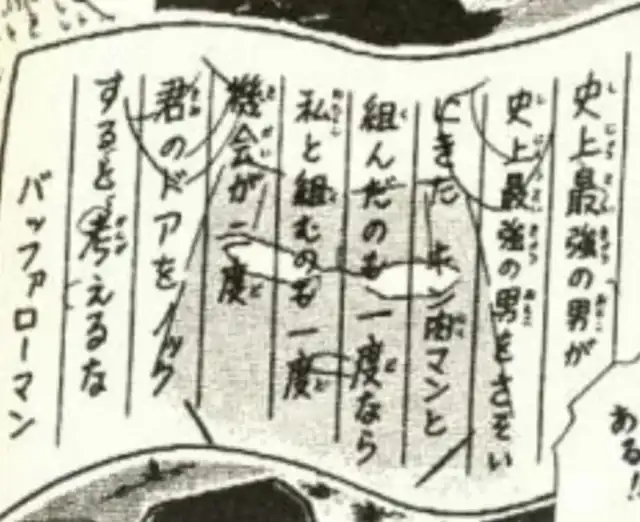 史上最強の男が
史上最強の男をさそい
にきた キン肉マンと
組んだのも一度なら
私と組むのも一度
機会が二度
君のドアをノック
すると考えるな
バッファローマン
ある!!